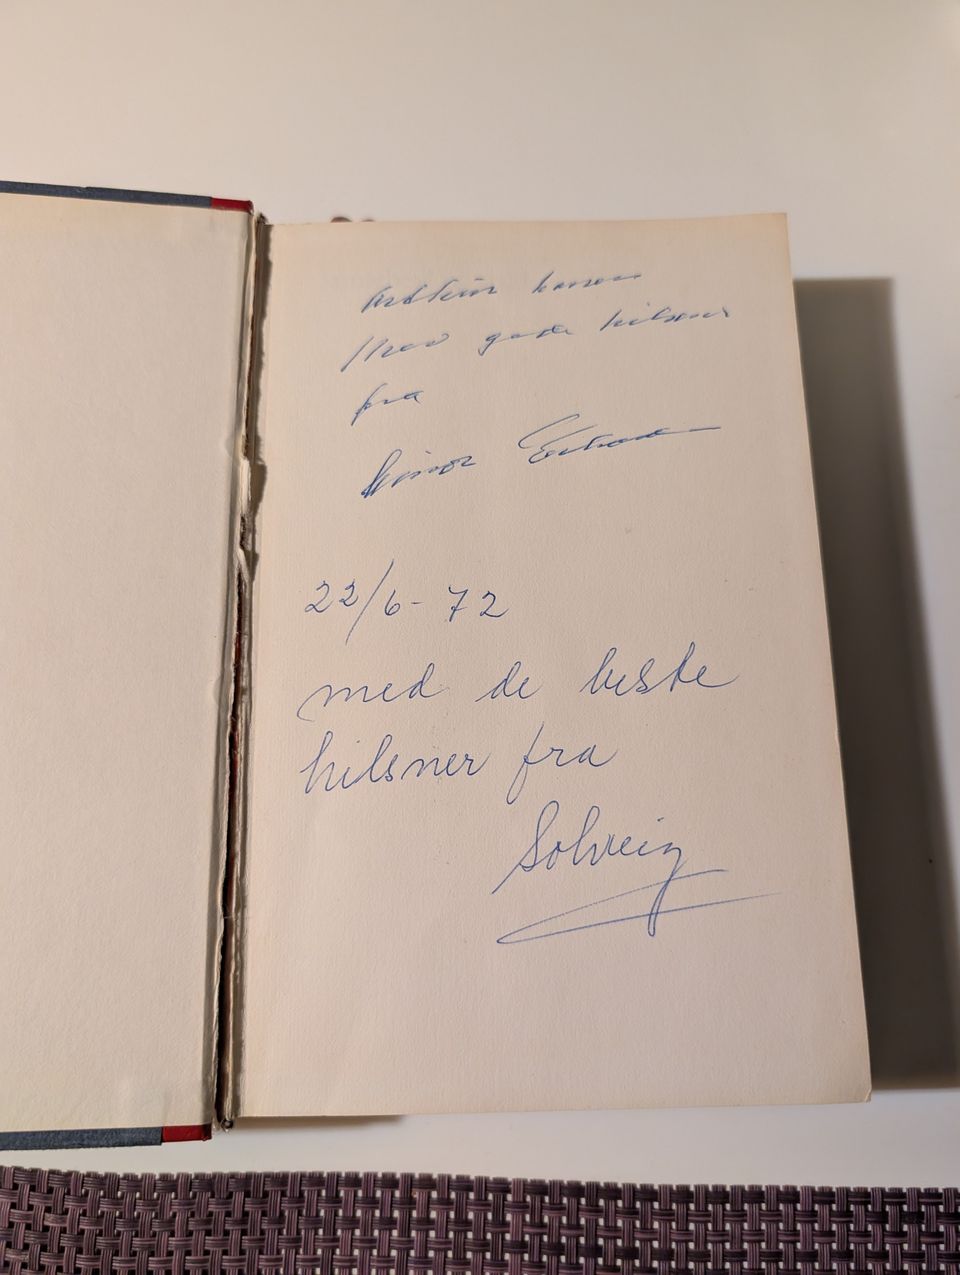 Med gode hilsener
fra
22/6-72
med de beste
hilsner fra
Solveig